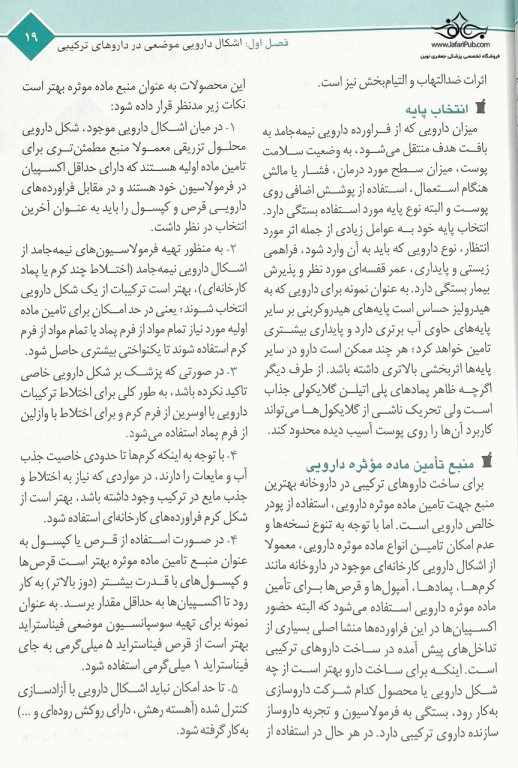 فصل اول: اشکال دارویی موضعی در داروهای ترکیبی
۱۹
www.JafariPub.com
فروشگاه تخصصی پزشکی جعفری نوین
اثرات ضدالتهاب و التیام‌بخش نیز است.
انتخاب پایه
میزان دارویی که از فرآورده دارویی نیمه‌جامد به
بافت هدف منتقل می‌شود، به وضعیت سلامت
پوست، میزان سطح مورد درمان، فشار یا مالش
هنگام استعمال، استفاده از پوشش اضافی روی
پوست و البته نوع پایه مورد استفاده بستگی دارد.
انتخاب پایه خود به عوامل زیادی از جمله اثر مورد
انتظار، نوع دارویی که باید به آن وارد شود، فراهمی
زیستی و پایداری، عمر قفسه‌ای مورد نظر و پذیرش
بیمار بستگی دارد. به عنوان نمونه برای دارویی که به
هیدرولیز حساس است پایه‌های هیدروکربنی بر سایر
پایه‌های حاوی آب برتری دارد و پایداری بیشتری
تامین خواهد کرد؛ هر چند ممکن است دارو در سایر
پایه‌ها اثربخشی بالاتری داشته باشد. از طرف دیگر
اگرچه ظاهر پمادهای پلی اتیلن گلایکولی جذاب
است ولی تحریک ناشی از گلایکول‌ها می‌تواند
کاربرد آن‌ها را روی پوست آسیب دیده محدود کند.
منبع تأمین ماده مؤثره دارویی
برای ساخت داروهای ترکیبی در داروخانه بهترین
منبع جهت تامین ماده موثره دارویی، استفاده از پودر
خالص دارویی است. اما با توجه به تنوع نسخه‌ها و
عدم امکان تامین انواع ماده موثره دارویی، معمولا
از اشکال دارویی کارخانه‌ای موجود در داروخانه مانند
کرم‌ها، پمادها، آمپول‌ها و قرص‌ها برای تأمین
ماده موثره دارویی استفاده می‌شود که البته حضور
اکسپیان‌ها در این فراورده‌ها منشا اصلی بسیاری از
تداخل‌های پیش آمده در ساخت داروهای ترکیبی
است. اینکه برای ساخت دارو بهتر است از چه
شکل دارویی یا محصول کدام شرکت داروسازی
به‌کار رود، بستگی به فرمولاسیون و تجربه داروساز
سازنده داروی ترکیبی دارد. در هر حال در استفاده از
این محصولات به عنوان منبع ماده موثره بهتر است
نکات زیر مدنظر قرار داده شود:
۱- در میان اشکال دارویی موجود، شکل دارویی
محلول تزریقی معمولا منبع مطمئن‌تری برای
تامین ماده اولیه هستند که دارای حداقل اکسپیان
در فرمولاسیون خود هستند و در مقابل فراورده‌های
دارویی قرص و کپسول را باید به عنوان آخرین
انتخاب در نظر داشت.
۲- به منظور تهیه فرمولاسیون‌های نیمه‌جامد از
اشکال دارویی نیمه‌جامد (اختلاط چند کرم یا پماد
کارخانه‌ای)، بهتر است ترکیبات از یک شکل دارویی
انتخاب شوند؛ یعنی در حد امکان برای تامین ماده
اولیه مورد نیاز تمام مواد از فرم پماد یا تمام مواد از فرم
کرم استفاده شوند تا یکنواختی بیشتری حاصل شود.
۳- در صورتی که پزشک بر شکل دارویی خاصی
تاکید نکرده باشد، به طور کلی برای اختلاط ترکیبات
دارویی با اوسرین از فرم کرم و برای اختلاط با وازلین
از فرم پماد استفاده می‌شود.
۴- با توجه به اینکه کرم‌ها تا حدودی خاصیت جذب
آب و مایعات را دارند، در مواردی که نیاز به اختلاط و
جذب مایع در ترکیب وجود داشته باشد، بهتر است از
شکل کرم فراورده‌های کارخانه‌ای استفاده شود.
۴- در صورت استفاده از قرص یا کپسول به
عنوان منبع تامین ماده موثره بهتر است قرص‌ها
و کپسول‌های با قدرت بیشتر (دوز بالاتر) به کار
رود تا اکسپیان‌ها به حداقل مقدار برسد. به عنوان
نمونه برای تهیه سوسپانسیون موضعی فیناستراید
بهتر است از قرص فیناستراید ۵ میلی‌گرمی به جای
فیناستراید ۱ میلی‌گرمی استفاده شود.
۵- تا حد امکان نباید اشکال دارویی با آزادسازی
کنترل شده (آهسته رهش، دارای روکش روده‌ای و ...)
به‌کار گرفته شود.